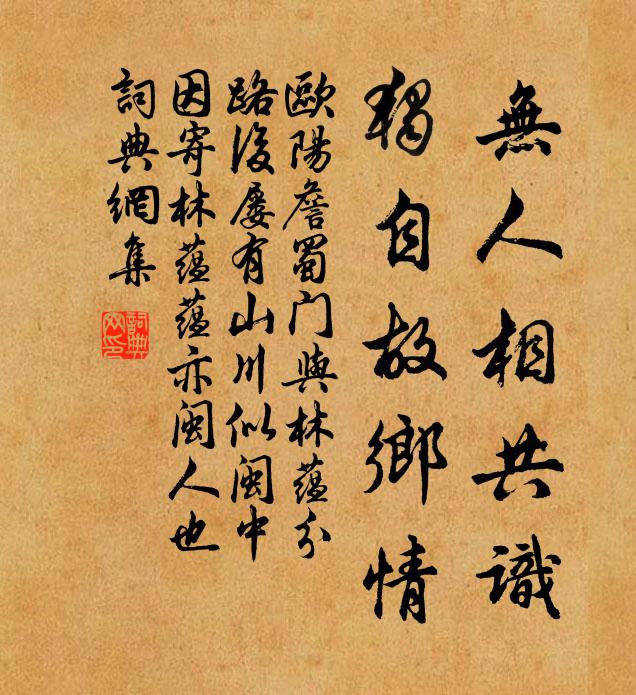 無人相共識
獨自故鄉情
歐陽詹蜀门與林蘊分
路後屡有山川似闽中
因寄林蕴蕴亦闽人也
詞典網集
詞典网印